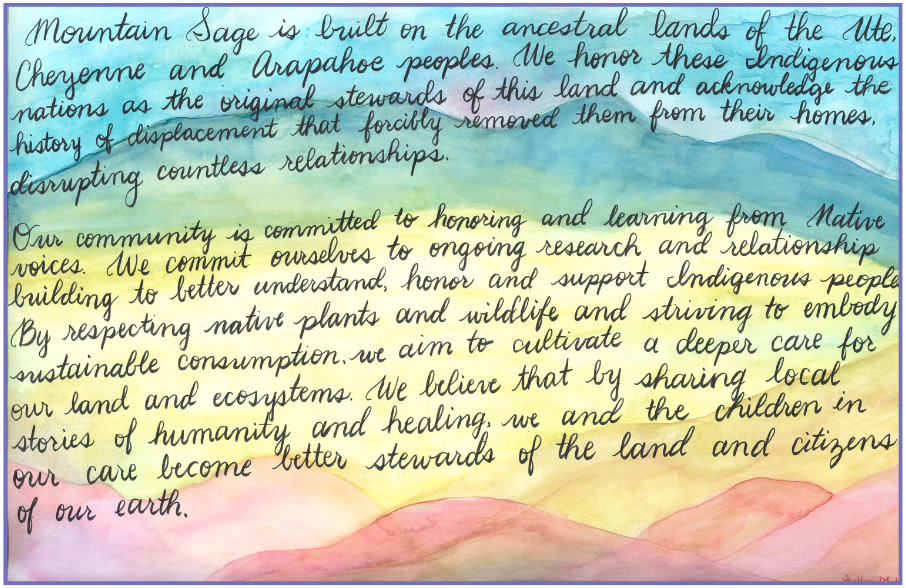 Mountain Sage is built on the ancestral lands of the Ute,
Cheyenne and Arapahoe peoples. We honor these Indigenous
nations as the original stewards of this land and acknowledge the
history of displacement that forcibly removed them from their homes,
disrupting countless relationships.
Our community is committed to honoring and learning from Native
voices. We commit ourselves to ongoing research and relationship
building to better understand, honor and support Indigenous people
By respecting native plants and wildlife and striving to embody
sustainable consumption, we aim to cultivate a deeper care for
our land and ecosystems. We believe that by sharing local
stories of humanity and healing, we and the children in
our care become better stewards of the land and citizens
of our earth.